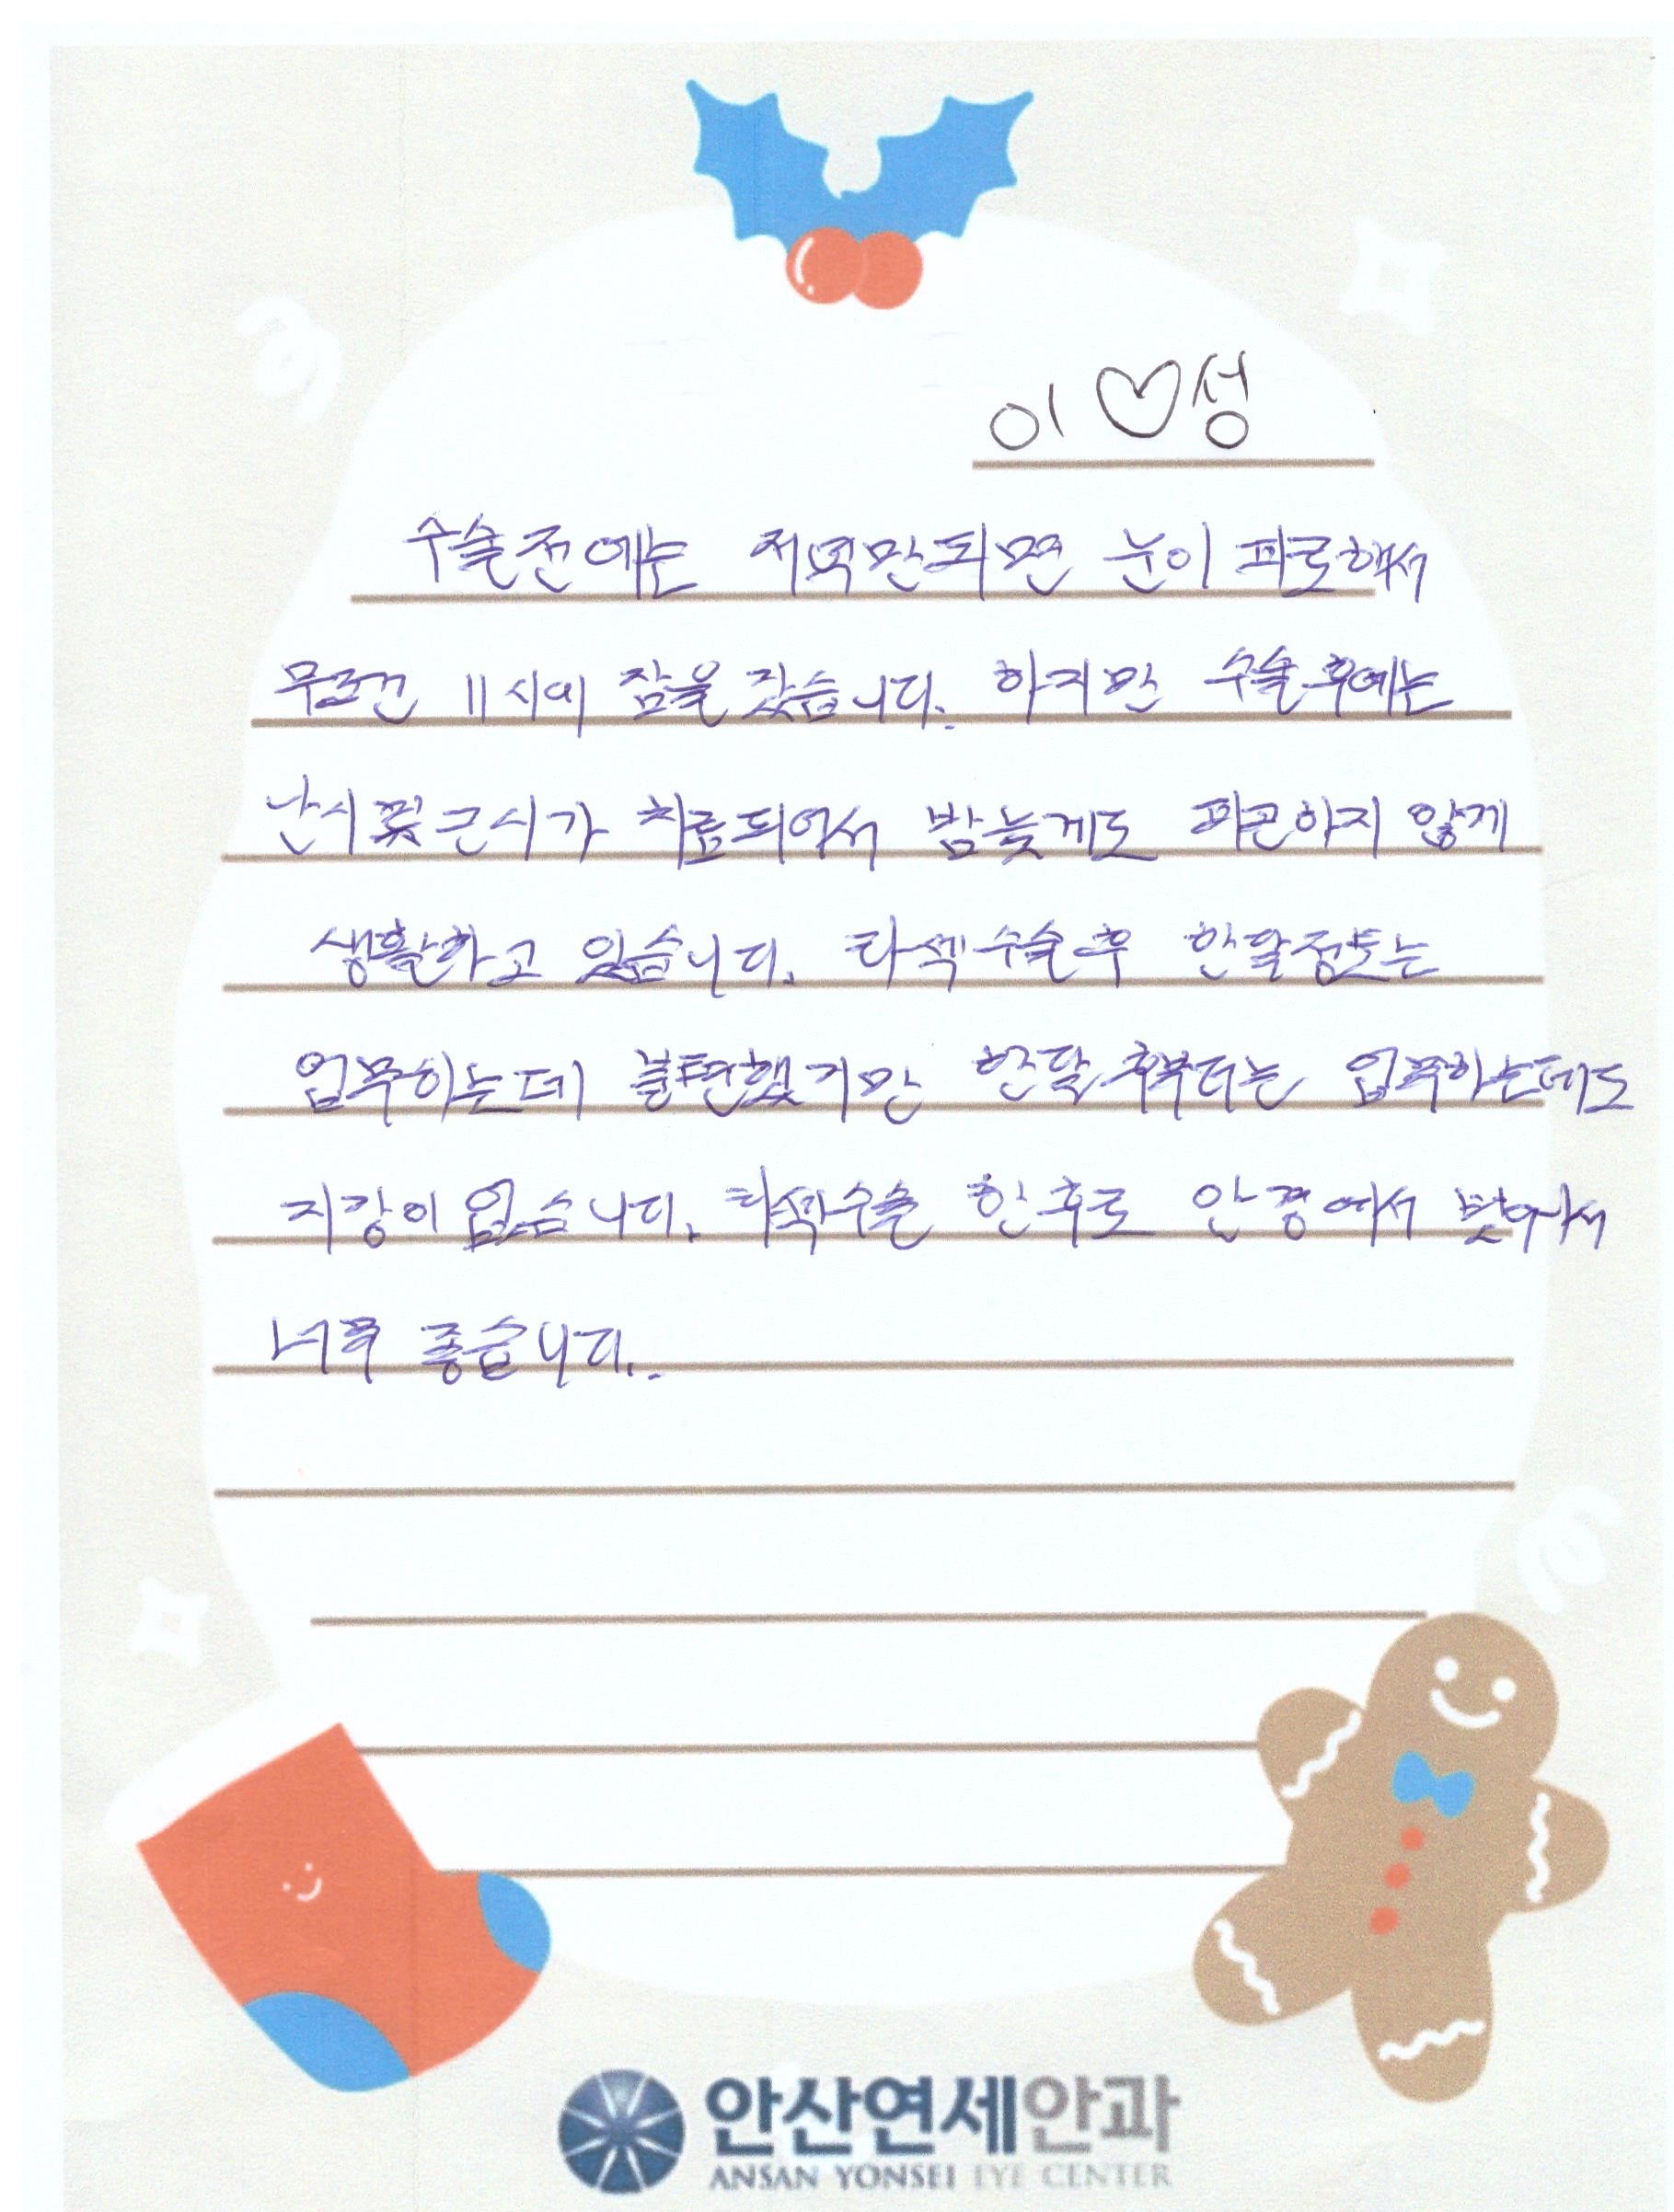 이♡성
수술전에는 저녁만되면 눈이 피로해서
무조건 11시에 잠을 잤습니다. 하지만 수술후에는
난시 및 근시가 치료되어서 밤늦게도 피곤하지 않게
생활하고 있습니다. 라섹수술후 한달정도는
업무하는데 불편했지만 한달후부터는 업무하는데도
지장이 없습니다. 라섹수술 한후로 안경에서 벗어나서
너무 좋습니다..
안산연세안과
ANSAN YONSEI EYE CENTER